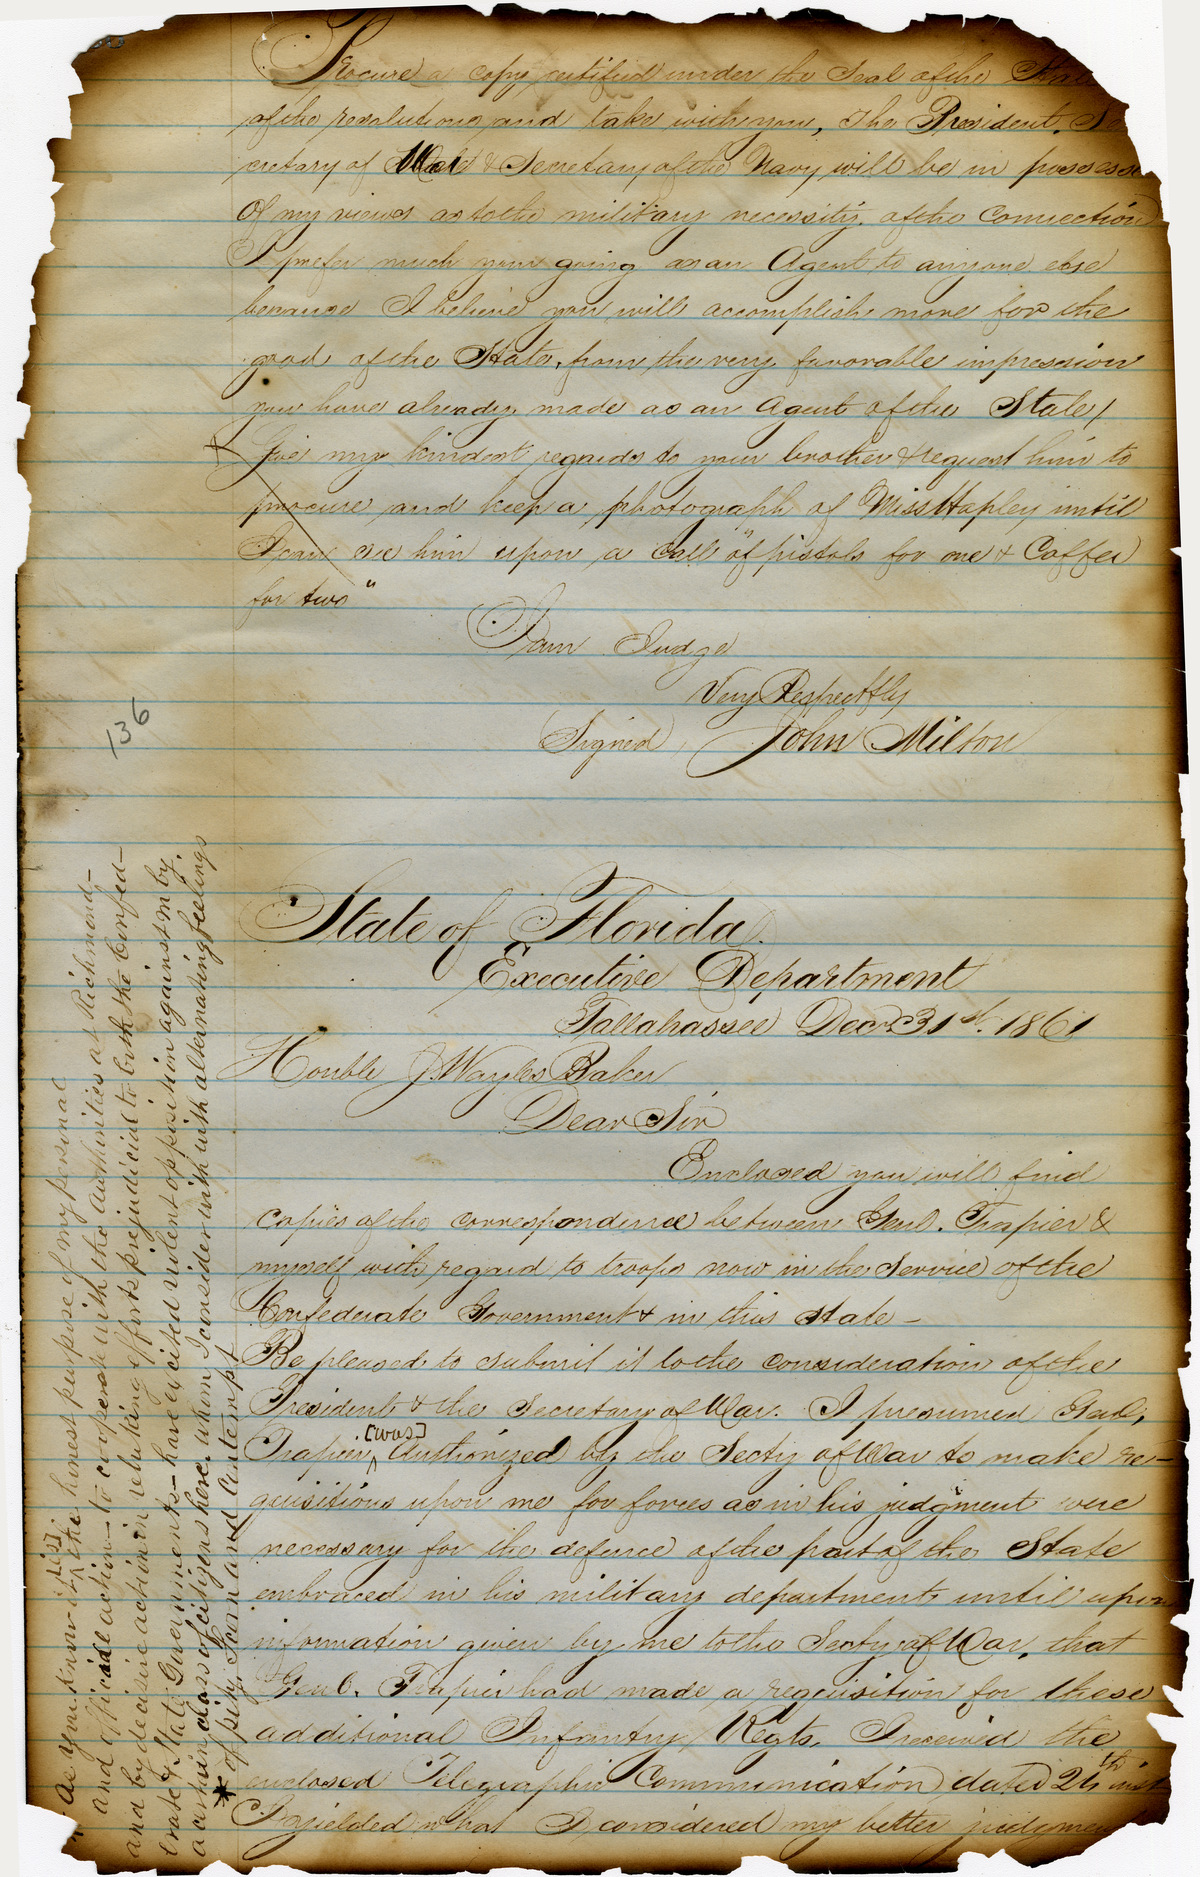 Procure a copy certified under the Seal of the State
of the resolutions and take with you, The President, Se
cretary of War & Secretary of the Navy will be in possess
of my views as to the military necessity of the Connection
I prefer much your going as an Agent to anyone else
because I believe you will accomplish more for the
good of the State, from the very favorable impression
you have already made as an Agent of the State/
Give my kindest regards to your brother & request him to
procure and keep a photograph of Miss Hapley until
I can see him upon a call "of pistols for one & Coffee
for two"
I am Judge
Very Respectfly
(Signed) John Milton
136
State of Florida.
Executive Department
Tallahassee Decr 31st. 1861
Honble J. Wayles Baker
Dear Sir
Enclosed you will find
copies of the correspondence between Genl. Trapier &
myself with regard to troops now in the Service of the
Confederate Government & in this State -
Be pleased to submit it to the consideration of the
President & the Secretary of War. I presumed Genl,
Trapier [was] Authorized by the Secty of War to make re-
quisitions upon me for forces as in his judgment were
necessary for the defence of the part of the State
embraced in his military department until upon
information given by me to the Secty of War, that
Genl. Trapier had made a requisition for these
additional Infantry Regts, I received the
enclosed Telegraphic Communication dated 24th inst
I yielded what I considered my better judgmen
" As you know it [is] the honest purpose of my personal
and official action - to cooperate with the Authorities at Richmond -
and by decisive action in rebuking efforts prejudicial to both the Confed-
erate & State Governments - have excited violent opposition against m by
a certain class of citizens here, whom I consider with with alternating feelings
* of pity, scorn and contempt